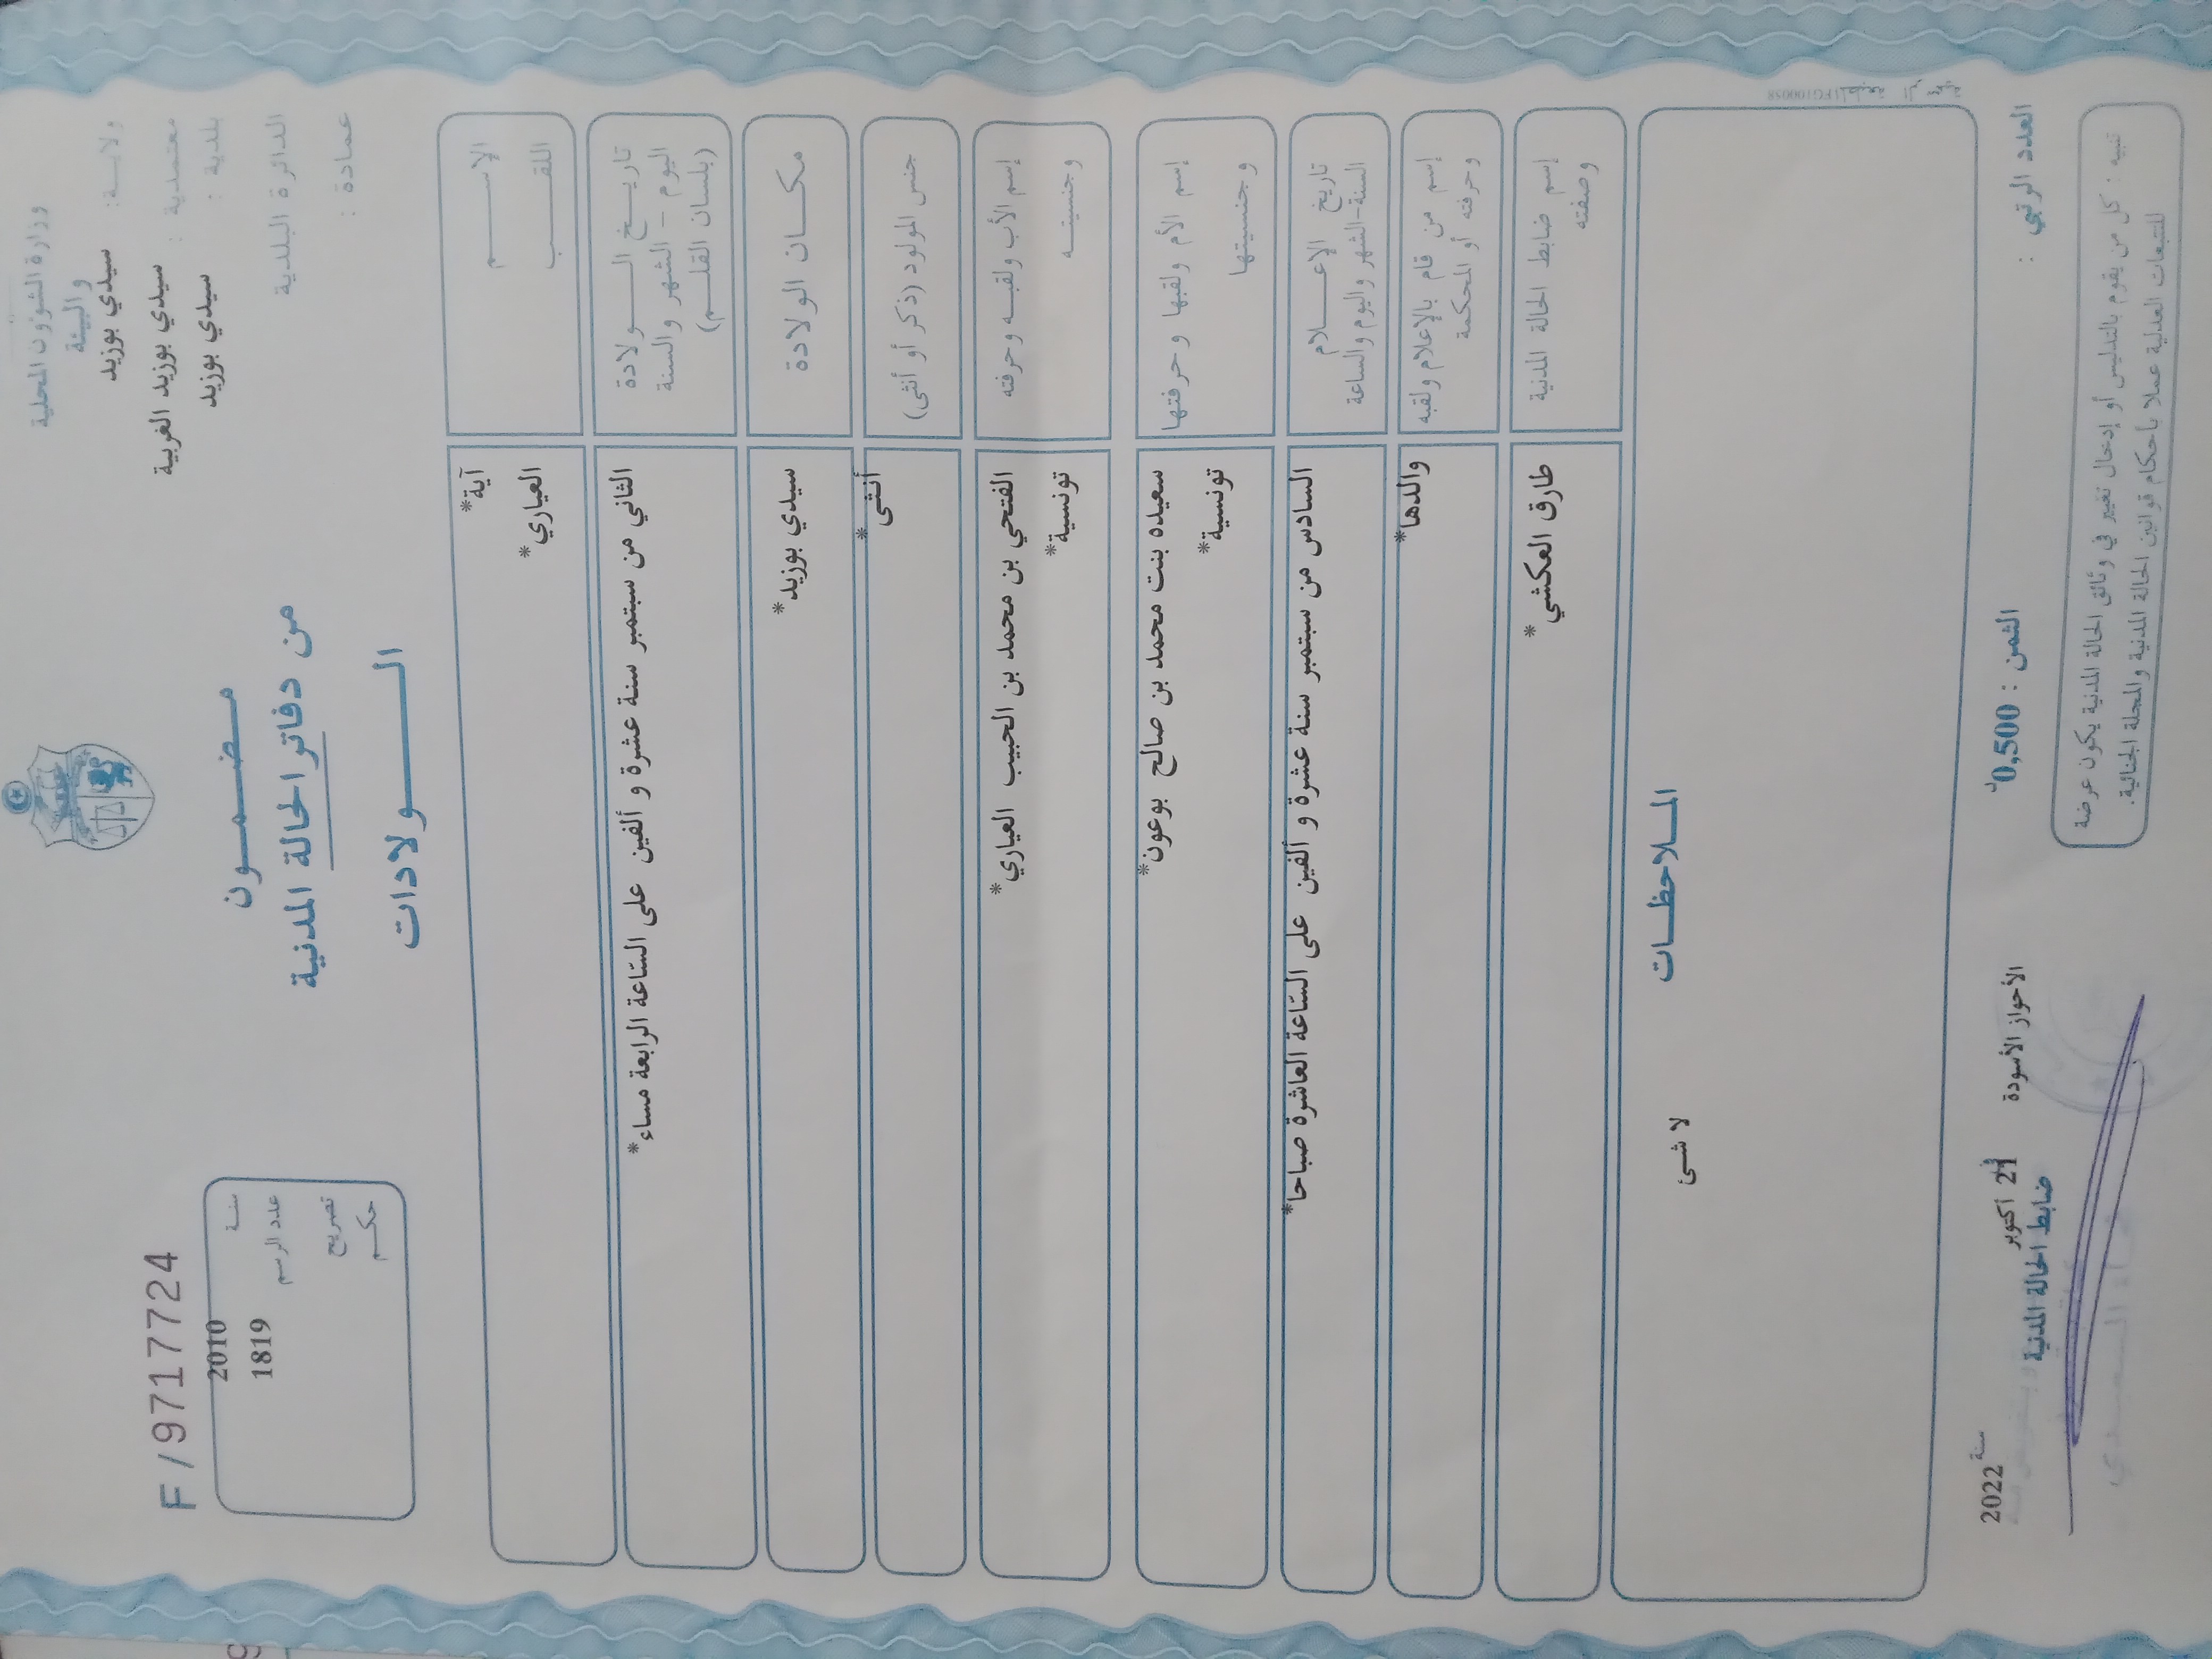 وزارة الشؤون المحلية
والبيئة
ولايـــة: سيدي بوزيد
معتمدية : سيدي بوزيد الغربية
بلدية : سيدي بوزيد
الدائرة البلدية
عمادة :
مضمـــون
من دفاتر الحالة المدنية
الـــولادات
F /9717724
سنـة 2010
عدد الرسم 1819
تصريح
حكـم
الإســـم آية*
اللقـــب العياري*
تاريــخ الـــولادة
اليوم – الشهر والسنة
(بلسان القلـــم)
الثاني من سبتمبر سنة عشرة و ألفين على السّاعة الرابعة مساء*
مكـــان الولادة سيدي بوزيد*
جنس المولود (ذكر أو أنثى) أنثى*
إسم الأب ولقبـه وحرفته الفتحي بن محمد بن الحبيب العياري*
وجنسيتـه تونسية*
إسم الأم ولقبها وحرفتها سعيده بنت محمد بن صالح بوعون*
وجنسيتها تونسية*
تاريخ الإعـــلام
السنة-الشهر واليوم والساعة
السادس من سبتمبر سنة عشرة و ألفين على السّاعة العاشرة صباحا*
إسم من قام بالإعلام ولقبه
وحرفته أو المحكمة
والدها*
إسم ضابط الحالة المدنية
وصفته
طارق العكشي*
المـلاحظـات
لا شئ
العدد الرتبي :
الثمن : 0,500د
الأحواز الأسودة 21 أكتوبر سنة 2022
ضابط الحالة المدنية
تنبيه : كل من يقوم بالتدليس أو إدخال تغيير في وثائق الحالة المدنية يكون عرضة
للتتبعات العدلية عملا بأحكام قوانين الحالة المدنية والمجلة الجنائية.